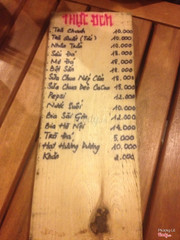 THỰC ĐƠN
Trà Chanh 10.000
Trà Quất (Tắc) 10.000
Nhân Trần 10.000
Sấu Đá 18.000
Mơ Đá 18.000
Bột Sắn 18.000
Sữa Chua Nếp Cẩm 18.000
Sữa Chua Dẻo CaCao 18.000
Pepsi 12.000
Nước Suối 10.000
Bia Sài Gòn 12.000
Bia Hà Nội
Trà Đá 5.000
Hạt Hướng Dương 10.000
Khăn 2.000